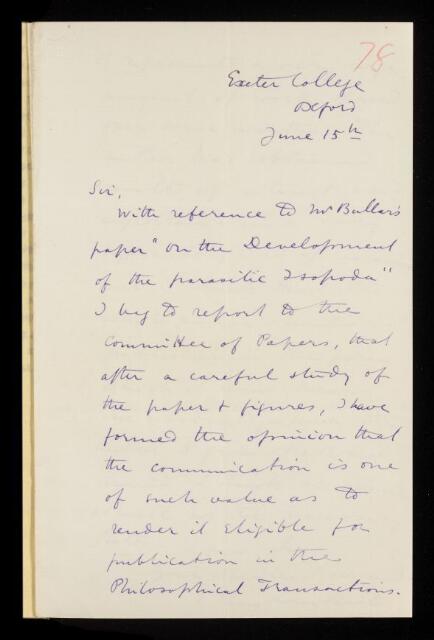 78
Exeter College
Oxford
June 15th
Sir,
With reference to Mr Bullar's
paper "on the Development
of the parasitic Isopoda"
I beg to report to the
Committee of Papers, that
after a careful study of
the paper & figures, I have
formed the opinion that
the communication is one
of such value as to
render it eligible for
publication in the
Philosophical Transactions.